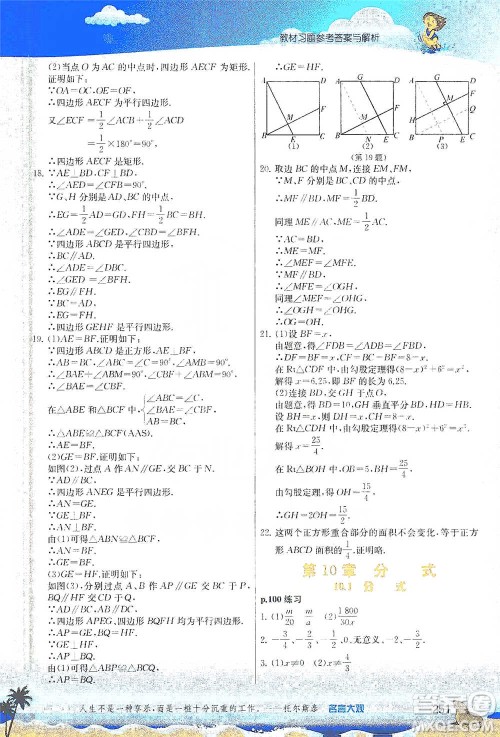 教材习题参考答案与解析
(2)当点O为AC的中点时,四边形AECF为矩形.
证明如下:
∵OA=OC,OE=OF,
∴四边形AECF为平行四边形.
又∠ECF=1/2∠ACB+1/2∠ACD
=1/2×180°=90°,
∴四边形AECF是矩形.
18. ∵AE⊥BD,CF⊥BD,
∴∠AED=∠CFB=90°.
∵G,H分别是AD,BC的中点,
∴EG=1/2AD=GD,FH=1/2BC=BH.
∴∠ADE=∠GED,∠CBF=∠BFH.
∵四边形ABCD是平行四边形,
∴BC∥AD.
∴∠ADE=∠CBF.
∴∠GED=∠BFH.
∴EG∥FH.
∵BC=AD,
∴EG=FH.
∴四边形GEHF是平行四边形.
19. (1)AE=BF.证明如下:
∵四边形ABCD是正方形,AE⊥BF,
∴AB=BC,∠ABC=∠C=90°,∠AMB=90°.
∴∠BAE+∠ABM=∠CBF+∠ABM=90°.
∴∠BAE=∠CBF.
在△ABE和△BCF中{∠ABC=∠C, ∠BAE=∠CBF, AB=BC,
∴△ABE≌△BCF(AAS).
∴AE=BF.
(2)GE=BF.证明如下:
如图(2),过点A作AN∥GE,
∵AG∥EN,
∴四边形ANEG是平行四边形.
∴AN=GE.
∵GE⊥BF,
∴AN⊥BF.
由(1)可得△ABN≌△BCF.
∴AN=BF.
∴GE=BF.
(3)如图(3),分别过点A、B作AP∥GE,BQ∥HF.
∵AG∥EP,BH∥QF,
∴四边形APEG、四边形BQFH均为平行四边形.
∴AP=GE,BQ=HF.
∵GE⊥HF,
∴AP⊥BQ.
由(1)可得△ABP≌△BCQ.
∴AP=BQ.
∴GE=HF.
A G D
M F
B E C
(1)
A G D
M F
B N E C
(2)
A G D
H M F
B P E C
(3)
(第19题)
20. 取边BC的中点M,连接EM,FM,
∵M,F分别是BC,CD的中点,
∴MF∥BD,MF=1/2BD.
同理ME∥AC,ME=1/2AC.
∵AC=BD,
∴ME=MF.
∴∠MEF=∠MFE.
∵MF∥BD,
∴∠MFE=∠OGH.
同理,∠MEF=∠OHG.
∴∠OGH=∠OHG.
∴OG=OH.
21. (1)设BF=x,
由题意,得∠FDB=∠ADB=∠FBD,
∴DF=BF=x,CF=8-x.
在Rt△CDF中,由勾股定理得(8-x)²+6²=x².
解得x=6.25,即BF的长为6.25.
(2)连接BD,交GH于点O,
由题意,得BD=10,GH垂直平分BD.
设BH=x,则DH=x,CH=8-x.
在Rt△CDH中,由勾股定理,得(8-x)²+6²=x².
解得x=25/4.
在Rt△DHO中,DH=25/4,
由勾股定理,得OH=15/4.
∴GH=2OH=15/2.
22. 这两个正方形重合部分的面积不会变化,等于正方形ABCD面积的1/4.证明略.
第10章 分 式
10.1 分 式
p.100练习
1. (1)m/20 a/m (2)1800/30
2. -3/4,-3/2,0,无意义,-2,-3/4.
3. (1)x≠0 (2)x≠1 (3)x≠-1/2.
人生不是一种享乐,而是一桩十分沉重的工作。——托尔斯泰 名言大观